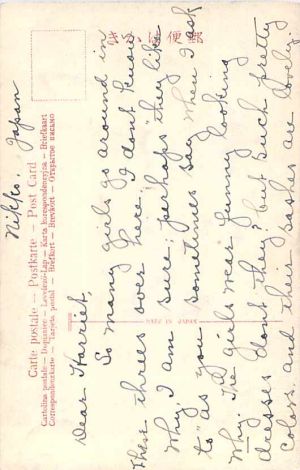 Nikko, Japan
きがは便郵
Carte postale — Postkarte — Post Card
Cartolina postale — Dopisnice — Levelező-Lap — Karta korespondencyjna — Briefkaart
Correspondenzkarte — Tarjeta postal — Brefkort — Brevkort — Открытое письмо
MADE IN JAPAN
Dear Harriet,
So many girls go around in
these threes over here I don't know
Why I am sure; perhaps they like
to "as you sometimes say When I ask
Why. The girls wear funny looking
dresses don't they? but such pretty
Colors and their sashes are lovely.